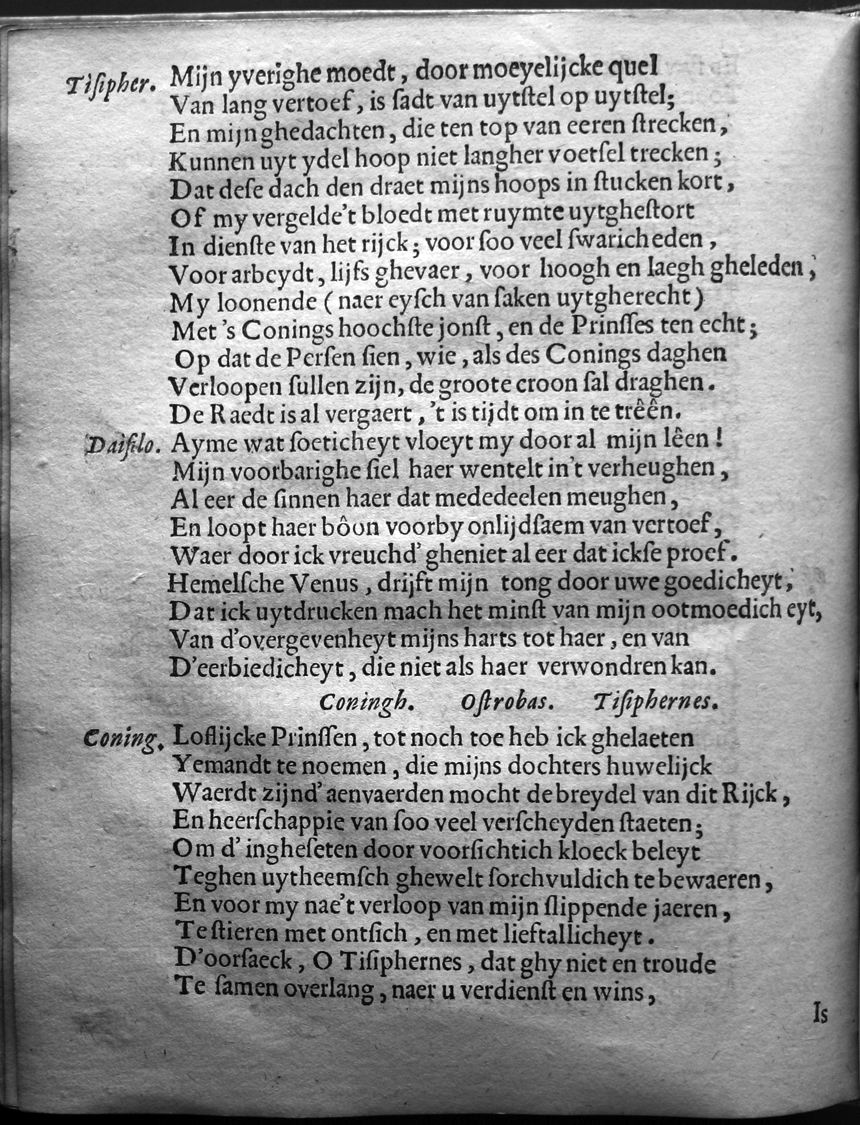 Tiſipher. Mijn yverighe moedt, door moeyelijcke quel
Van lang vertoef, is ſadt van uytſtel op uytſtel;
En mijn ghedachten, die ten top van eeren ſtrecken,
Kunnen uyt ydel hoop niet langher voetſel trecken;
Dat deſe dach den draet mijns hoops in ſtucken kort,
Of my vergelde't bloedt met ruymte uytgheſtort
In dienſte van het rijck; voor ſoo veel ſwaricheden,
Voor arbeydt, lijfs ghevaer, voor hoogh en laegh gheleden;
My loonende (naer eyſch van ſaken uytgherecht)
Met 's Conings hoochſte jonſt, en de Prinſſes ten echt;
Op dat de Perſen ſien, wie, als des Conings daghen
Verloopen ſullen zijn, de groote croon ſal draghen.
De Raedt is al vergaert, 't is tijdt om in te trêên.
Daiſilo. Ayme wat ſoeticheyt vloeyt my door al mijn lêen!
Mijn voorbarighe ſiel haer wentelt in't verheughen,
Al eer de ſinnen haer dat mededeelen meughen,
En loopt haer bôon voorby onlijdſaem van vertoef,
Waer door ick vreuchd' gheniet al eer dat ickſe proef.
Hemelſche Venus, drijft mijn tong door uwe goedicheyt,
Dat ick uytdrucken mach het minſt van mijn ootmoedicheyt,
Van d'overgevenheyt mijns harts tot haer, en van
D'eerbiedicheyt, die niet als haer verwondren kan.
Coningh. Oſtrobas. Tiſiphernes.
Coning. Loflijcke Prinſſen, tot noch toe heb ick ghelaeten
Yemandt te noemen, die mijns dochters huwelijck
Waerdt zijnd' aenvaerden mocht de breydel van dit Rijck,
En heerſchappie van ſoo veel verſcheyden ſtaeten;
Om d' ingheſeten door voorſichtich kloeck beleyt
Teghen uytheemſch ghewelt ſorchvuldich te bewaeren,
En voor my nae't verloop van mijn ſlippende jaeren,
Te ſtieren met ontſich, en met lieftallicheyt.
D'oorſaeck, O Tiſiphernes, dat ghy niet en troude
Te ſamen overlang, naer u verdienſt en wins,
Is